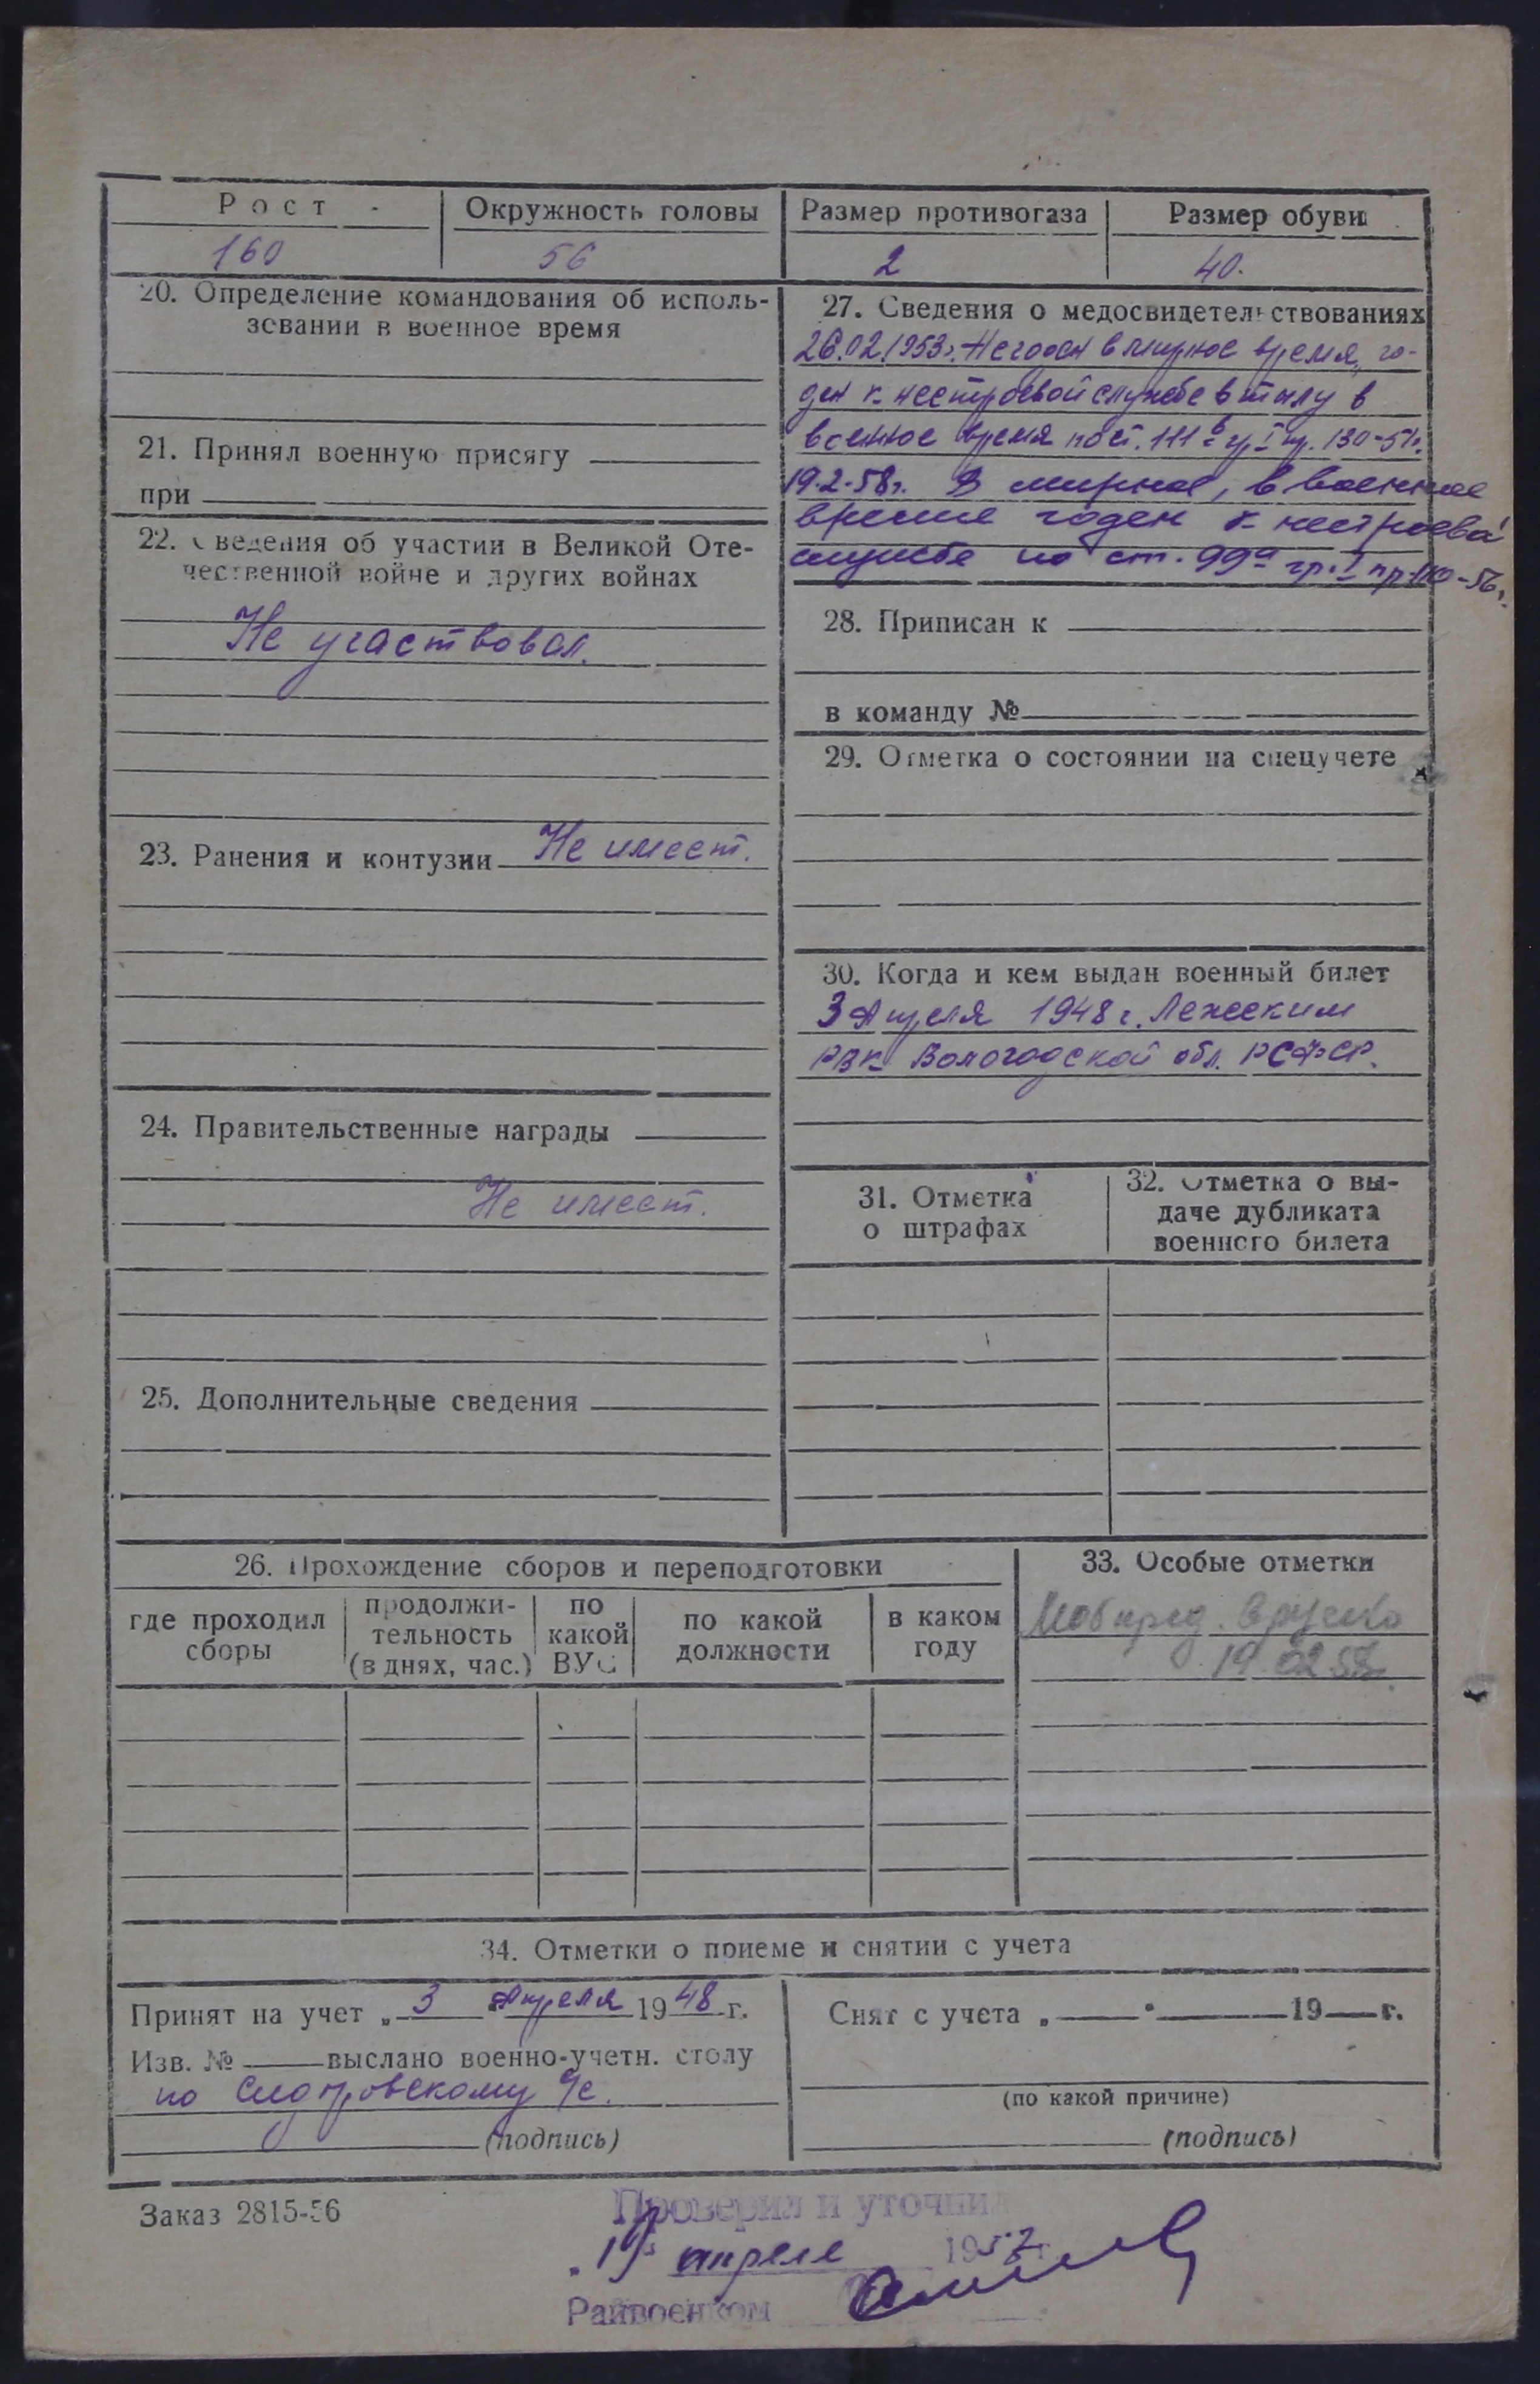 Рост Окружность головы Размер противогаза Размер обуви
160 56 2 40.
20. Определение командования об исполь-
зовании в военное время
21. Принял военную присягу
при
22. Сведения об участии в Великой Оте-
чественной войне и других войнах
Не участвовал.
23. Ранения и контузии Не имеет.
24. Правительственные награды
Не имеет.
25. Дополнительные сведения
27. Сведения о медосвидетельствованиях
26.02.1953г. Негоден в мирное время, го-
ден к нестроевой службе в тылу в
военное время по ст. 111 в гр. I пр. 130-51г.
19.2.58г. В мирное, в военное
время годен к нестроевой
службе по ст. 99а гр. I пр. 110-56г.
28. Приписан к
в команду №
29. Отметка о состоянии на спецучете
30. Когда и кем выдан военный билет
3 Апреля 1948 г. Лежским
РВК Вологодской обл. РСФСР.
31. Отметка
о штрафах
32. Отметка о вы-
даче дубликата
военного билета
26. Прохождение сборов и переподготовки
где проходил
сборы
продолжи-
тельность
(в днях, час.)
по
какой
ВУС
по какой
должности
в каком
году
33. Особые отметки
Мобпред.
19.02.58г.
34. Отметки о приеме и снятии с учета
Принят на учет „3 Апреля 1948 г.
Изв. № выслано военно-учетн. столу
по Сидоровскому с/с.
(подпись)
Снят с учета „ " 19 г.
(по какой причине)
(подпись)
Заказ 2815-56
Проверил и уточнил
апреля 1957 г.
Райвоенком